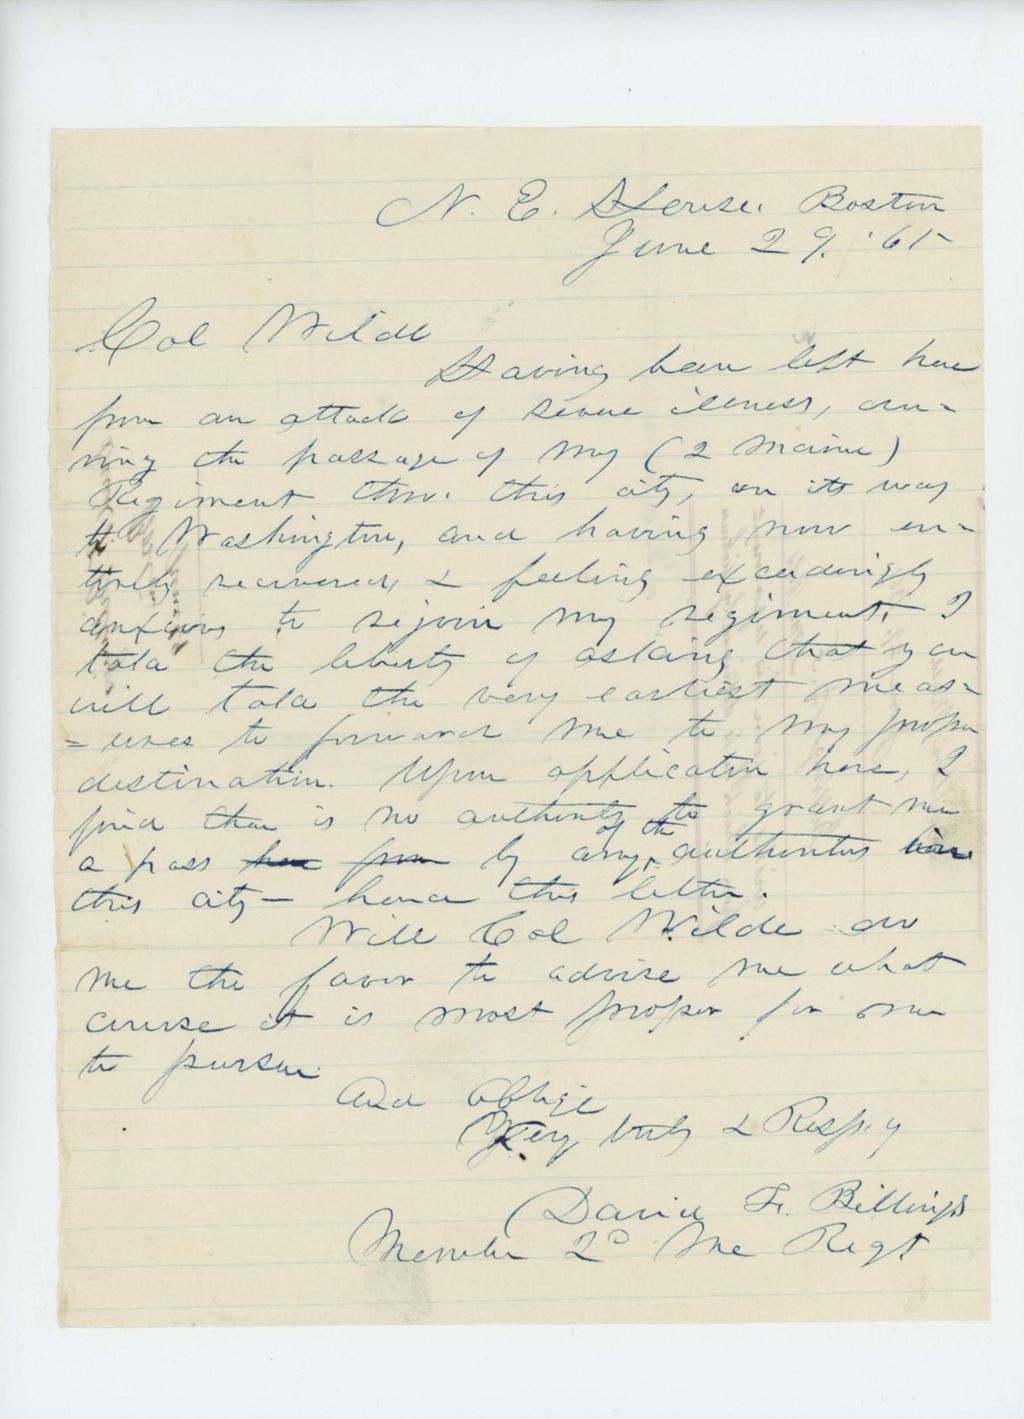 N. E. House. Boston
June 29. '61-
Col Wilde
Having been left here
from an attack of severe illness, du=
ring the passage of my (2 Maine)
Regiment thro. this city, on its way
to Washington, and having now en=
tirely recovered, & feeling exceedingly
anxious to rejoin my regiment, I
take the liberty of asking that you
will take the very earliest meas=
=ures to forward me to my proper
destination. Upon application here, I
find there is no authority to grant me
of the
a pass here from by any authorities in
this city – hence this letter.
Will Col Wilde do
me the favor to advise me what
course it is most proper for me
to pursue.
And oblige
Very truly & Resp.y
David F. Billings
Member 2D Me Regt